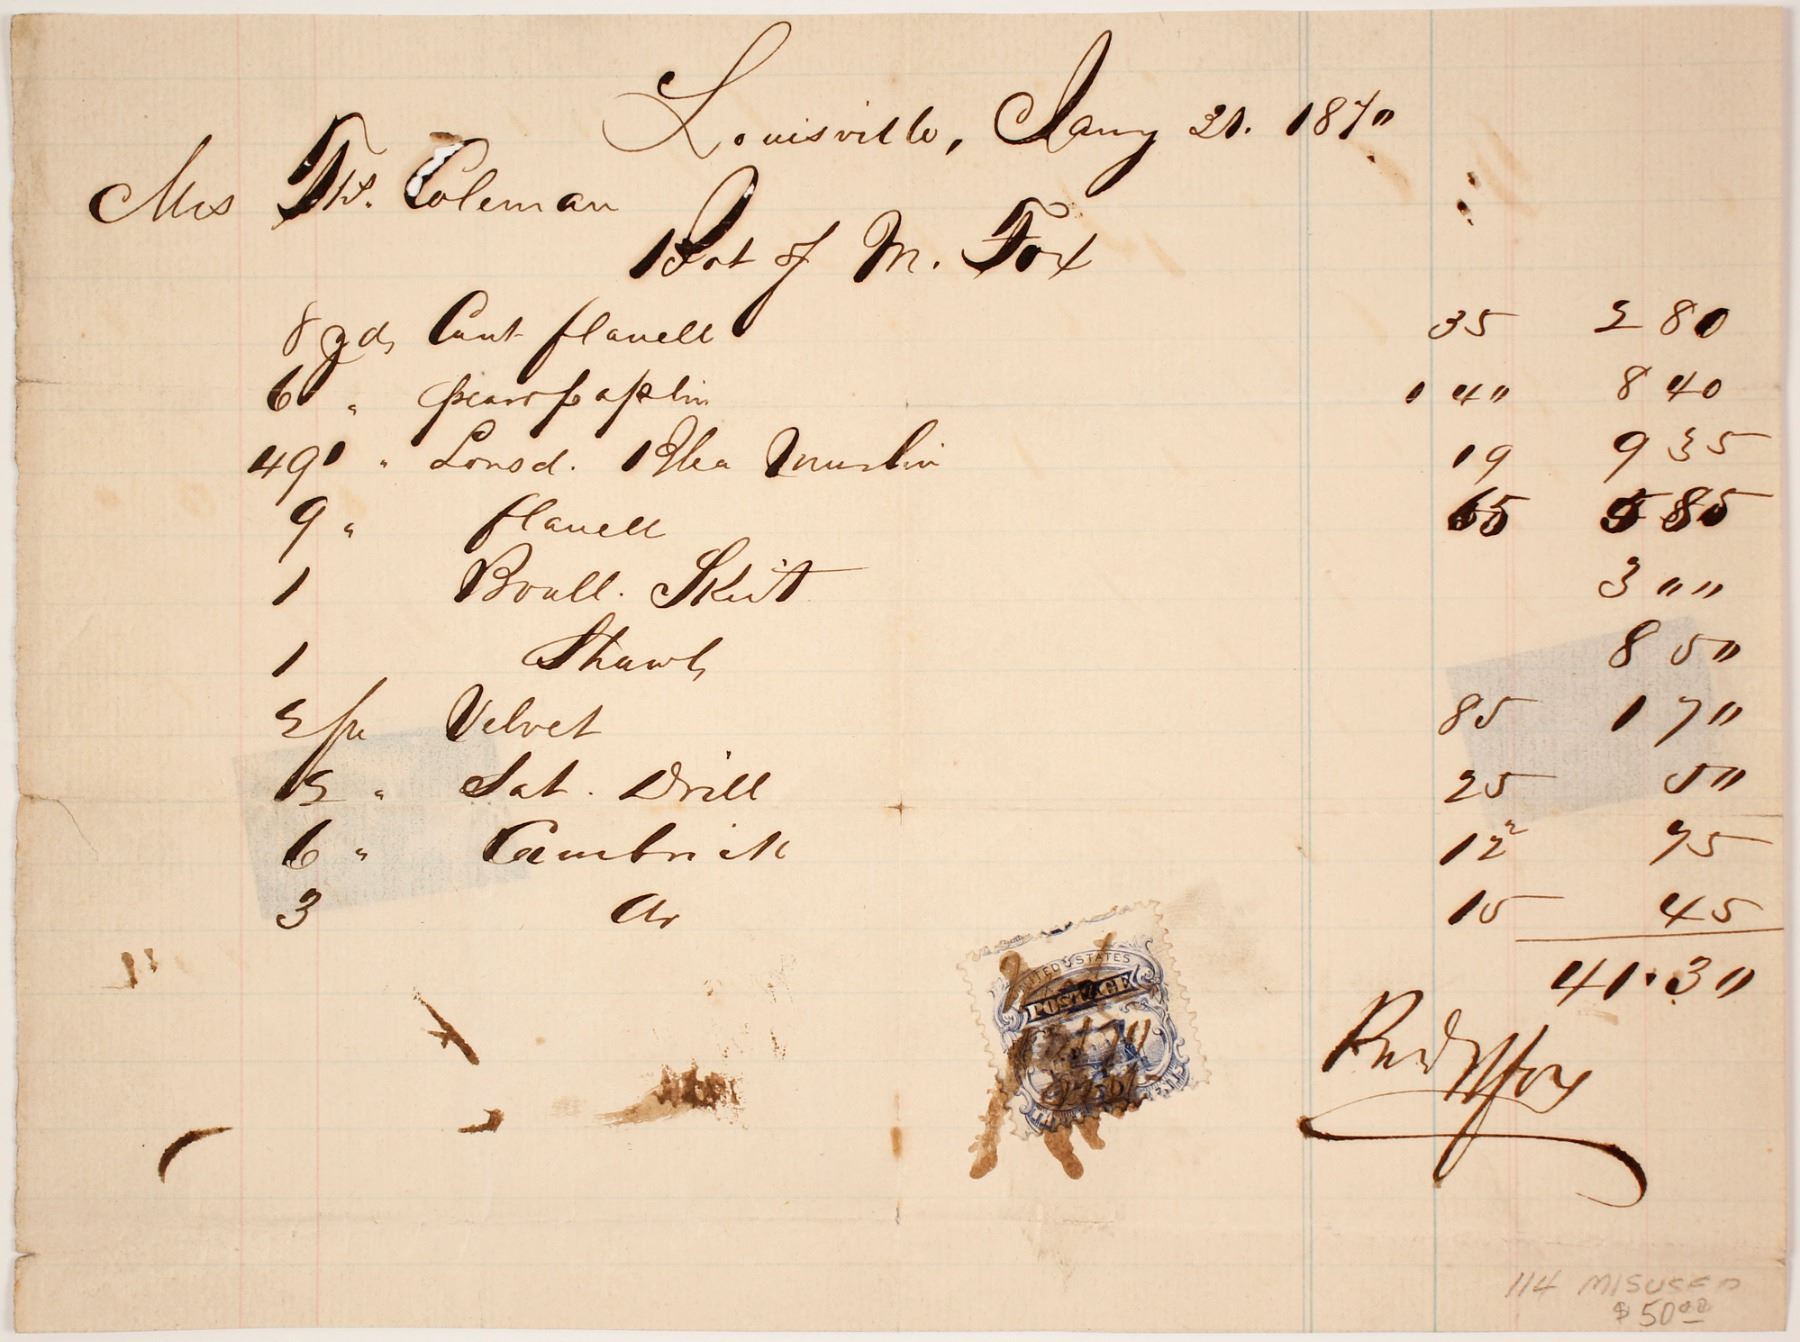 Louisville, Jany 31. 1870
Mrs Th. Coleman
Bot of M. Fox
8 yds Cant flanell 35 2 80
6 " poplin 1 40 8 40
49 " Lonsd. Muslin 19 9 35
9 " flanell 65 5 85
1 Boull. Skirt 3 " "
1 Shawl 8 50
2 Velvet 85 1 70
2 " Sat. Drill 25 50
6 " Cambrick 12 75
3 do 15 45
41.30
UNITED STATES
POSTAGE
Recd M Fox
114 MISUSED
$50.00